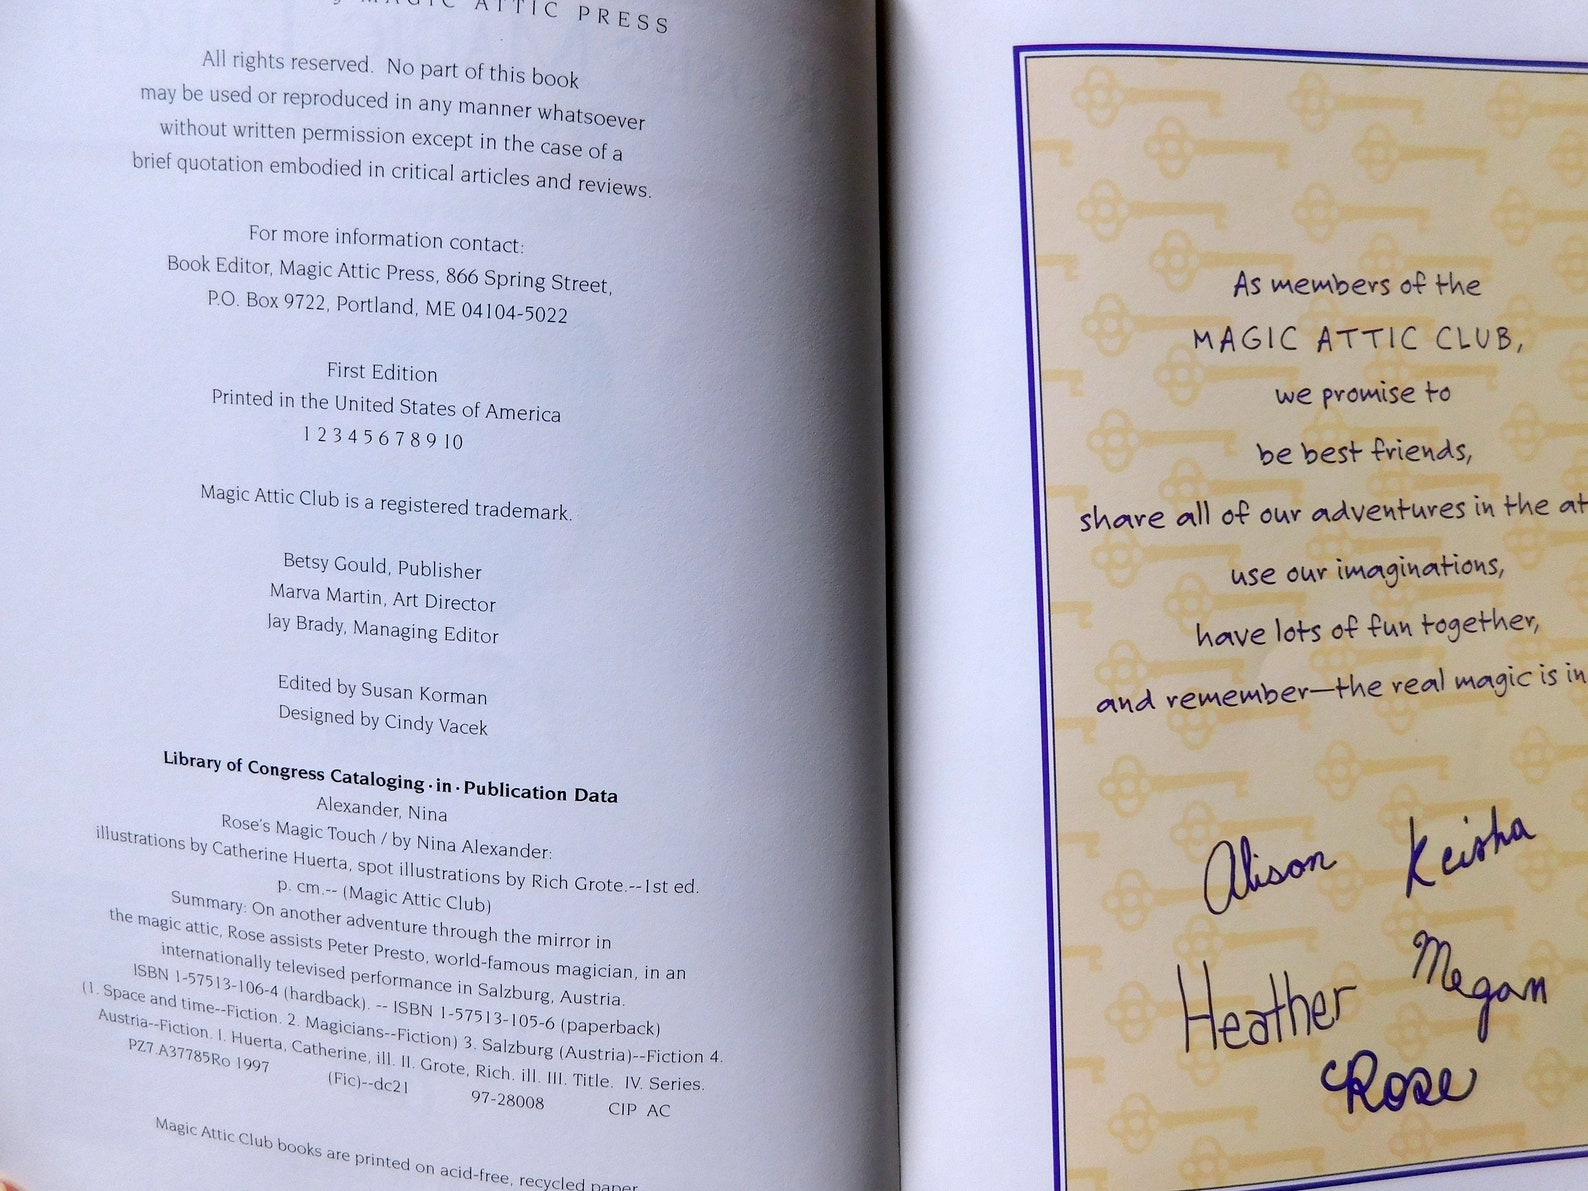 MAGIC ATTIC PRESS
All rights reserved. No part of this book
may be used or reproduced in any manner whatsoever
without written permission except in the case of a
brief quotation embodied in critical articles and reviews.
For more information contact:
Book Editor, Magic Attic Press, 866 Spring Street,
P.O. Box 9722, Portland, ME 04104-5022
First Edition
Printed in the United States of America
1 2 3 4 5 6 7 8 9 10
Magic Attic Club is a registered trademark.
Betsy Gould, Publisher
Marva Martin, Art Director
Jay Brady, Managing Editor
Edited by Susan Korman
Designed by Cindy Vacek
Library of Congress Cataloging·in·Publication Data
Alexander, Nina
Rose's Magic Touch / by Nina Alexander:
illustrations by Catherine Huerta, spot illustrations by Rich Grote.--1st ed.
p. cm.-- (Magic Attic Club)
Summary: On another adventure through the mirror in
the magic attic, Rose assists Peter Presto, world-famous magician, in an
internationally televised performance in Salzburg, Austria.
ISBN 1-57513-106-4 (hardback). -- ISBN 1-57513-105-6 (paperback)
(1. Space and time--Fiction. 2. Magicians--Fiction) 3. Salzburg (Austria)--Fiction 4.
Austria--Fiction. I. Huerta, Catherine, ill. II. Grote, Rich. ill. III. Title. IV. Series.
PZ7.A37785Ro 1997 (Fic)--dc21 97-28008 CIP AC
Magic Attic Club books are printed on acid-free, recycled paper
As members of the
MAGIC ATTIC CLUB,
we promise to
be best friends,
share all of our adventures in the at
use our imaginations,
have lots of fun together,
and remember—the real magic is in
Alison Keisha
Heather Megan
Rose